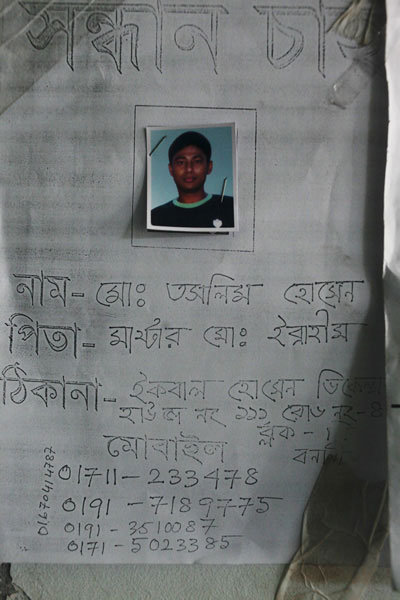 সন্ধান চাই
নাম- মোঃ তসলিম হোসেন
পিতা- মাস্টার মোঃ ইব্রাহীম
ঠিকানা- ইকবাল হোসেন
হাউজ নং ১১১ রোড নং-৪
ব্লক -
বনানী
মোবাইল
01711-233478
0191-7189775
0191-3510087
0171-5023385
01670414787